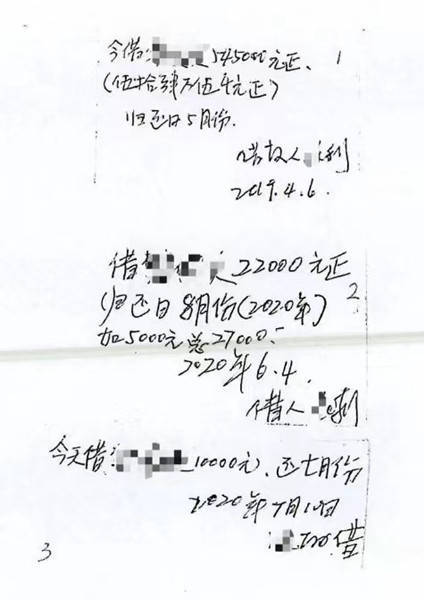 今借 545000元正、 1
(伍拾肆万伍千元正)
归还日5月份.
借款人 利
2019.4.6.
借 22000元正
归还日8月份(2020年) 2
加5000元总27000.-
2020年6.4.
借人 利
今天借 10000元、还七月份
2020年7月10日
借
3